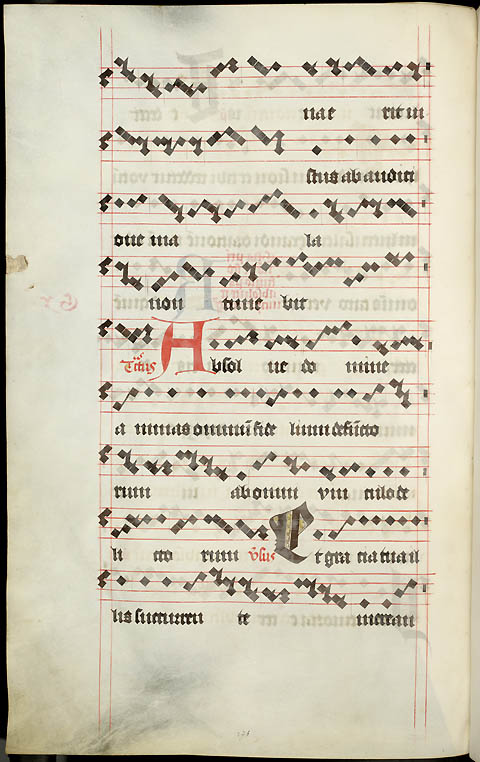 nae rit iu
stus ab auditi
one ma la
non time bit
Tctus Absol ue do mine
a nimas omnium fide lium defuncto
rum a b omni vin culo de
li cto rum v̉sus Et gra cia tua il
lis succurren te merean